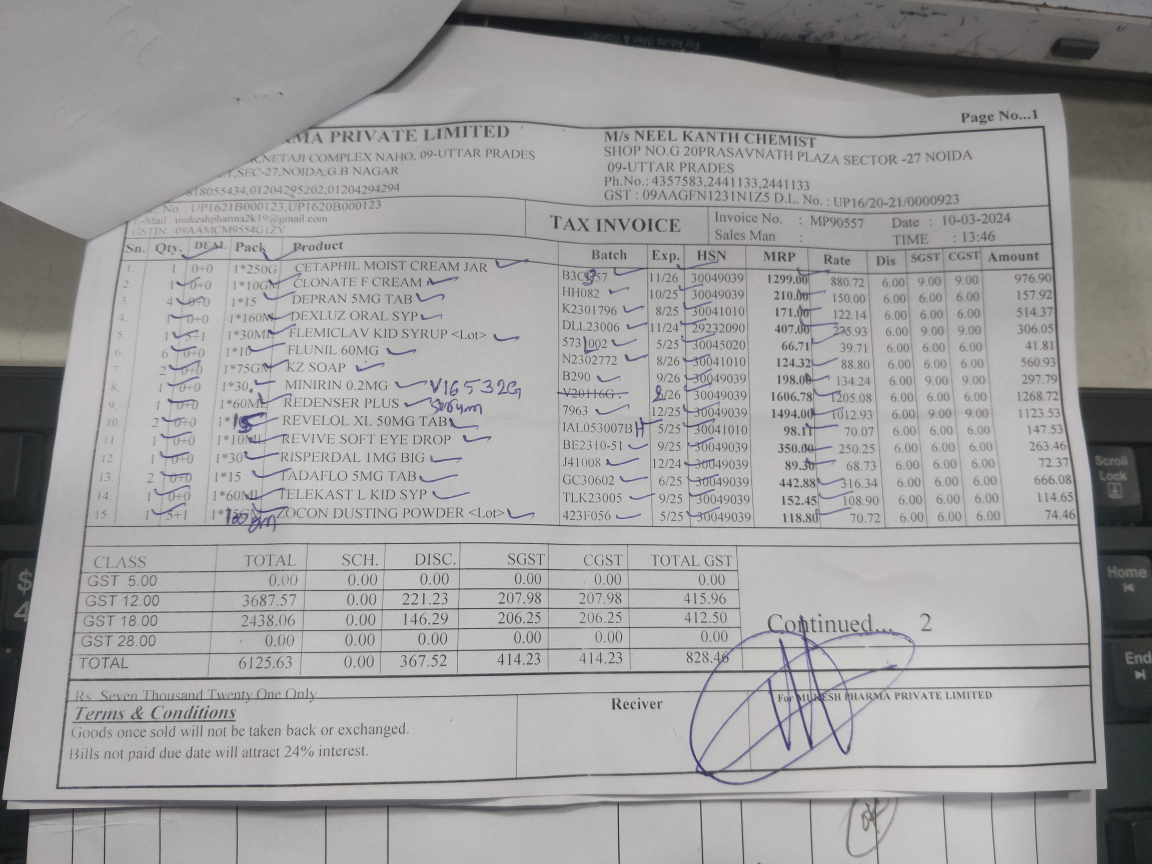 Page No...1
MA PRIVATE LIMITED
NETAJI COMPLEX NAHO. 09-UTTAR PRADES
SEC-27,NOIDA,G.B NAGAR
818055434,01204295202,01204294294
No. : UP1621B000123,UP1620B000123
E-Mail : mukeshpharma2k19@gmail.com
GSTIN : 09AAMCM9554G1ZV
M/s NEEL KANTH CHEMIST
SHOP NO.G 20PRASAVNATH PLAZA SECTOR -27 NOIDA
09-UTTAR PRADES
Ph.No.: 4357583,2441133,2441133
GST : 09AAGFN1231N1Z5 D.L. No. : UP16/20-21/0000923
TAX INVOICE
Invoice No. : MP90557 Date : 10-03-2024
Sales Man : TIME : 13:46
Sn. Qty. DEAL Pack Product Batch Exp. HSN MRP Rate Dis SGST CGST Amount
1. 1 0+0 1*250G CETAPHIL MOIST CREAM JAR 11/26 30049039 1299.00 880.72 6.00 9.00 9.00 976.90
2. 1 0+0 1*10GM CLONATE F CREAM HH082 10/25 30049039 210.00 150.00 6.00 6.00 6.00 157.92
3. 4 0+0 1*15 DEPRAN 5MG TAB K2301796 8/25 30041010 171.00 122.14 6.00 6.00 6.00 514.37
4. 1 0+0 1*160M DEXLUZ ORAL SYP DLL23006 11/24 29232090 407.00 275.93 6.00 9.00 9.00 306.05
5. 1 5+1 1*30ML FLEMICLAV KID SYRUP <Lot> 5731002 5/25 30045020 66.71 39.71 6.00 6.00 6.00 41.81
6. 6 0+0 1*10 FLUNIL 60MG N2302772 8/26 30041010 124.32 88.80 6.00 6.00 6.00 560.93
7. 2 0+0 1*75GM KZ SOAP B290 9/26 30049039 198.00 134.24 6.00 9.00 9.00 297.79
8. 1 0+0 1*30 MINIRIN 0.2MG V16532G V20116G 2/26 30049039 1606.78 1205.08 6.00 6.00 6.00 1268.72
9. 1 0+0 1*60ML REDENSER PLUS serum 7963 12/25 30049039 1494.00 1012.93 6.00 9.00 9.00 1123.53
10. 2 0+0 1*15 REVELOL XL 50MG TAB IAL053007BH 5/25 30041010 98.11 70.07 6.00 6.00 6.00 147.53
11. 1 0+0 1*10ML REVIVE SOFT EYE DROP BE2310-51 9/25 30049039 350.00 250.25 6.00 6.00 6.00 263.46
12 1 0+0 1*30 RISPERDAL 1MG BIG J41008 12/24 30049039 89.30 68.73 6.00 6.00 6.00 72.37
13. 2 0+0 1*15 TADAFLO 5MG TAB GC30602 6/25 30049039 442.88 316.34 6.00 6.00 6.00 666.08
14. 1 0+0 1*60ML TELEKAST L KID SYP TLK23005 9/25 30049039 152.45 108.90 6.00 6.00 6.00 114.65
15. 1 5+1 ZOCON DUSTING POWDER <Lot> 423F056 5/25 30049039 118.80 70.72 6.00 6.00 6.00 74.46
100 gm
CLASS TOTAL SCH. DISC. SGST CGST TOTAL GST
GST 5.00 0.00 0.00 0.00 0.00 0.00 0.00
GST 12.00 3687.57 0.00 221.23 207.98 207.98 415.96
GST 18.00 2438.06 0.00 146.29 206.25 206.25 412.50
GST 28.00 0.00 0.00 0.00 0.00 0.00 0.00
TOTAL 6125.63 0.00 367.52 414.23 414.23 828.46
Continued... 2
Rs. Seven Thousand Twenty One Only
Terms & Conditions
Goods once sold will not be taken back or exchanged.
Bills not paid due date will attract 24% interest.
Reciver
For MUKESH PHARMA PRIVATE LIMITED
Scroll
Lock
Home
End
$
4